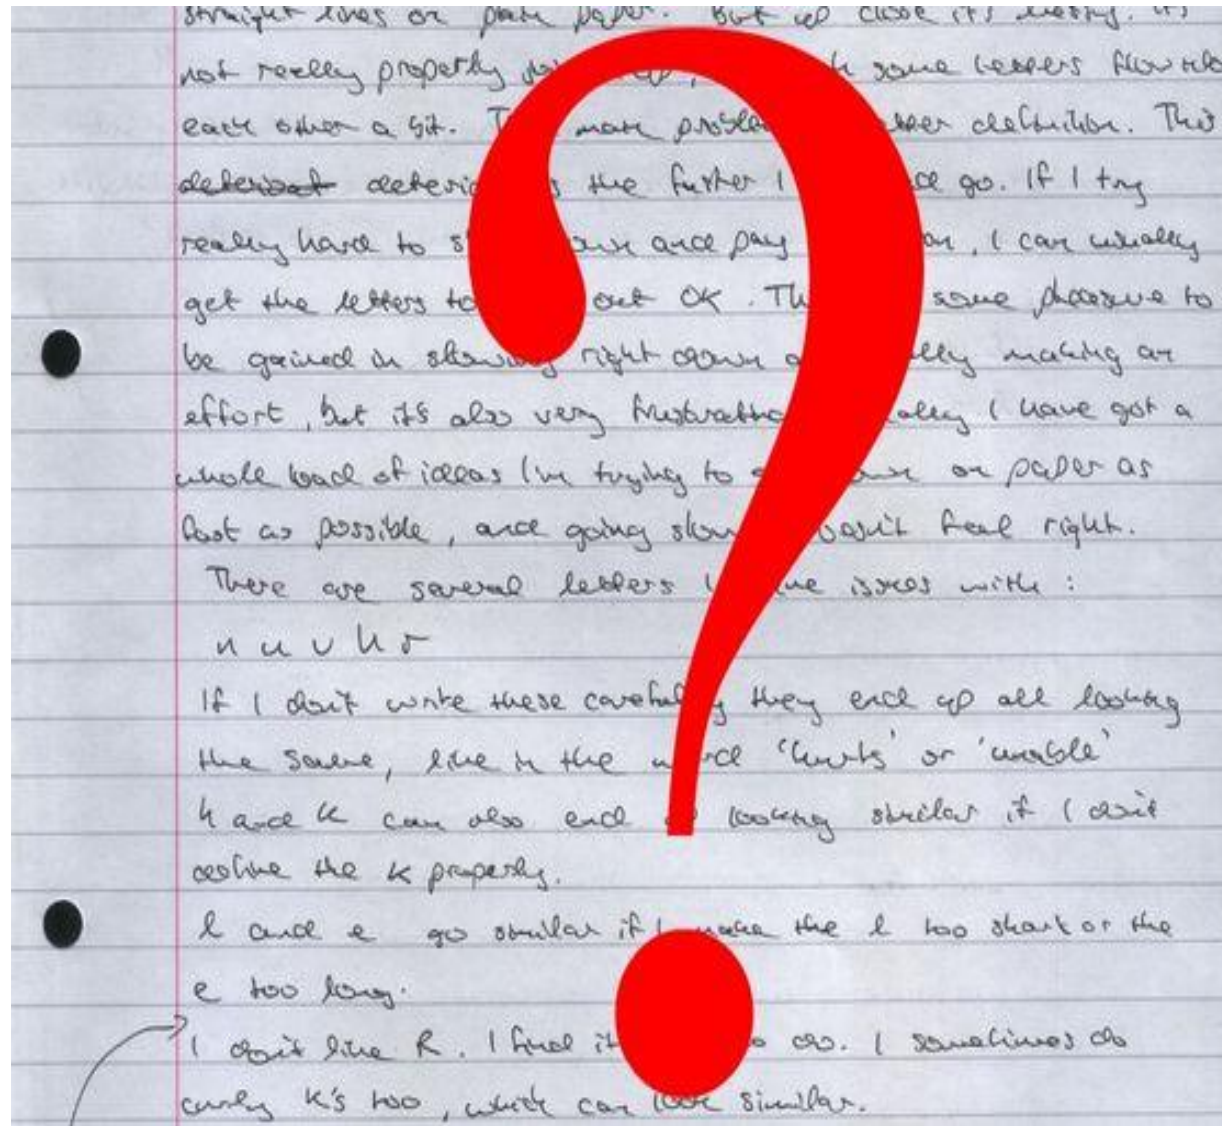 straight lines on plain paper. But up close it's messy. It's
not really properly up, some letters flow into
each other a bit. The main problem letter definition. This
deteriorat the further I go. If I try
really hard to and pay, I can usually
get the letters to out OK. some pleasure to
be gained in slowing right down making an
effort, but it's also very I have got a
whole load of ideas I'm trying to on paper as
fast as possible, and going feel right.
There are several letters issues with:
n u v h r
If I don't write these carefully they end up all looking
the same, like in the word 'hurts' or 'unable'
h and k can also end looking similar if I don't
define the k properly.
l and e go similar if I make the l too short or the
e too long.
I don't like R. I find it do. I sometimes do
curly K's too, which can look similar.